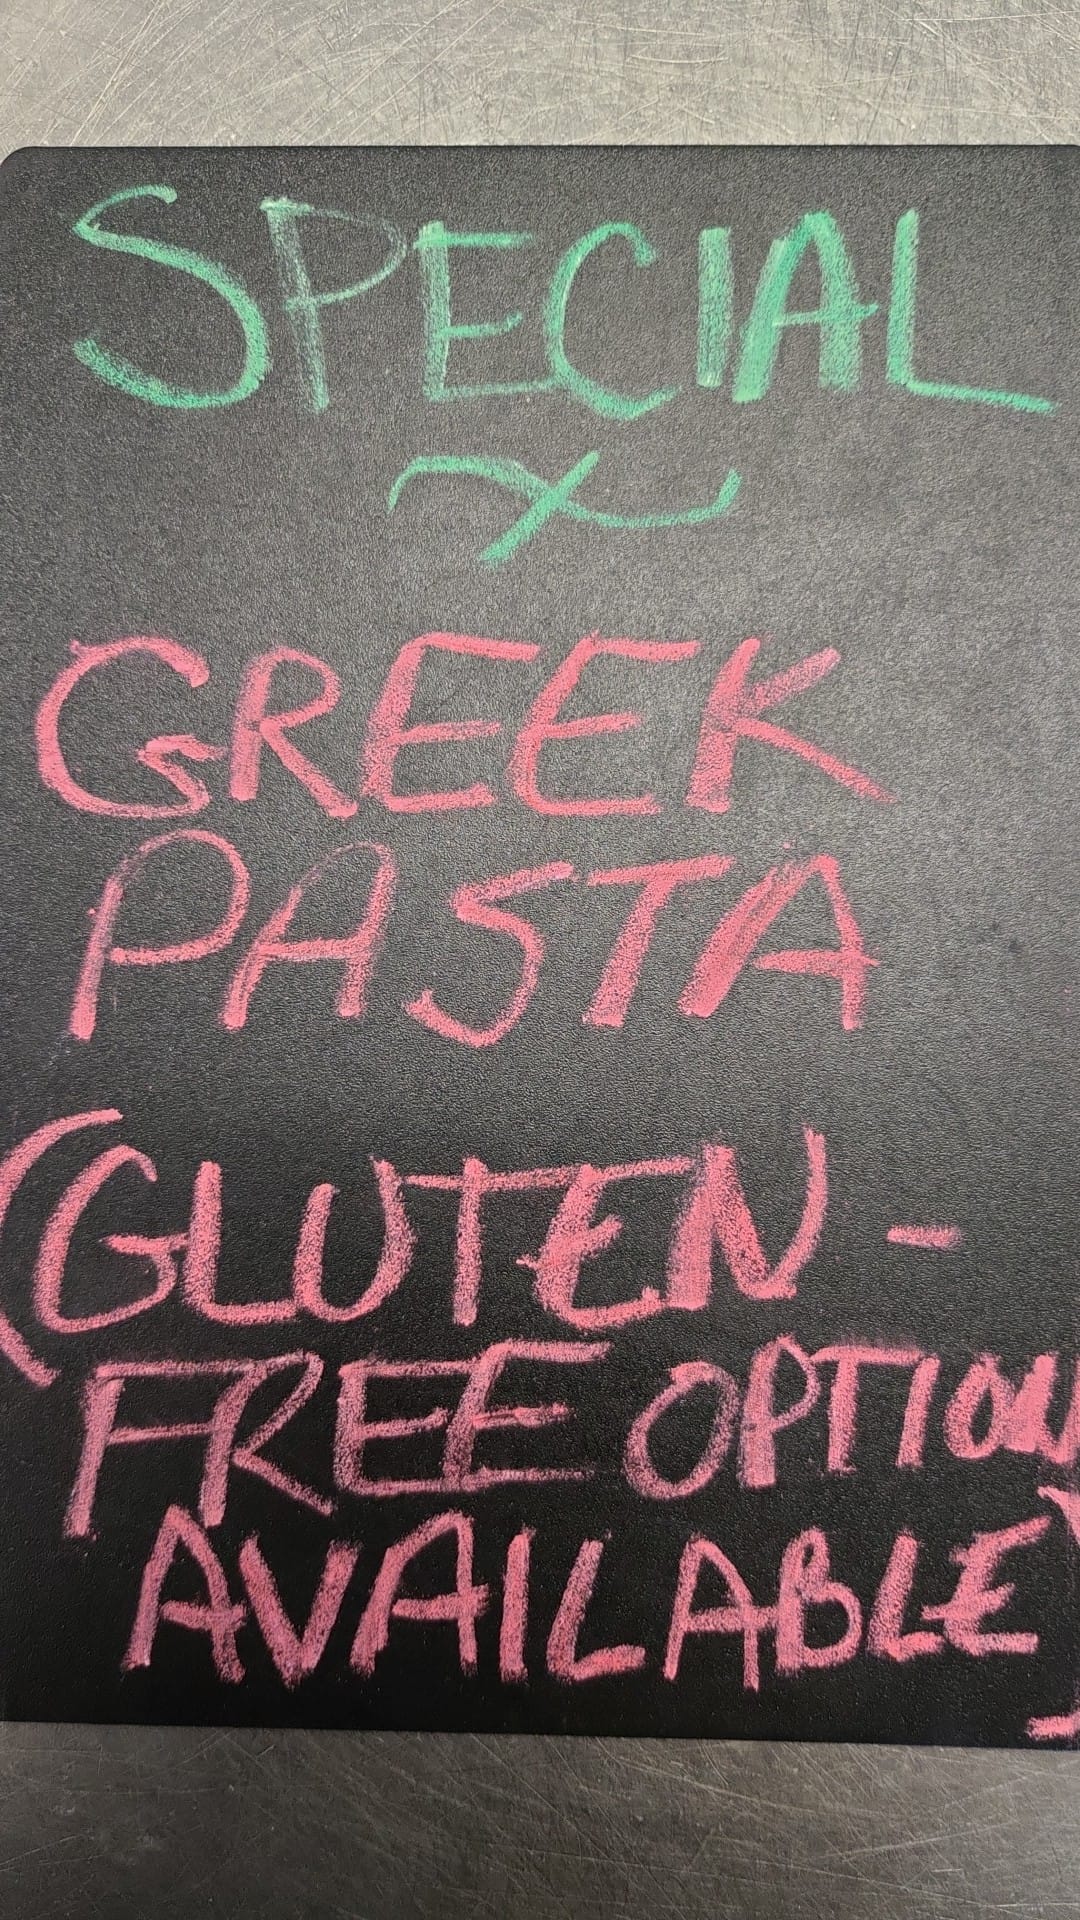 SPECIAL
GREEK
PASTA
(GLUTEN-
FREE OPTION
AVAILABLE)